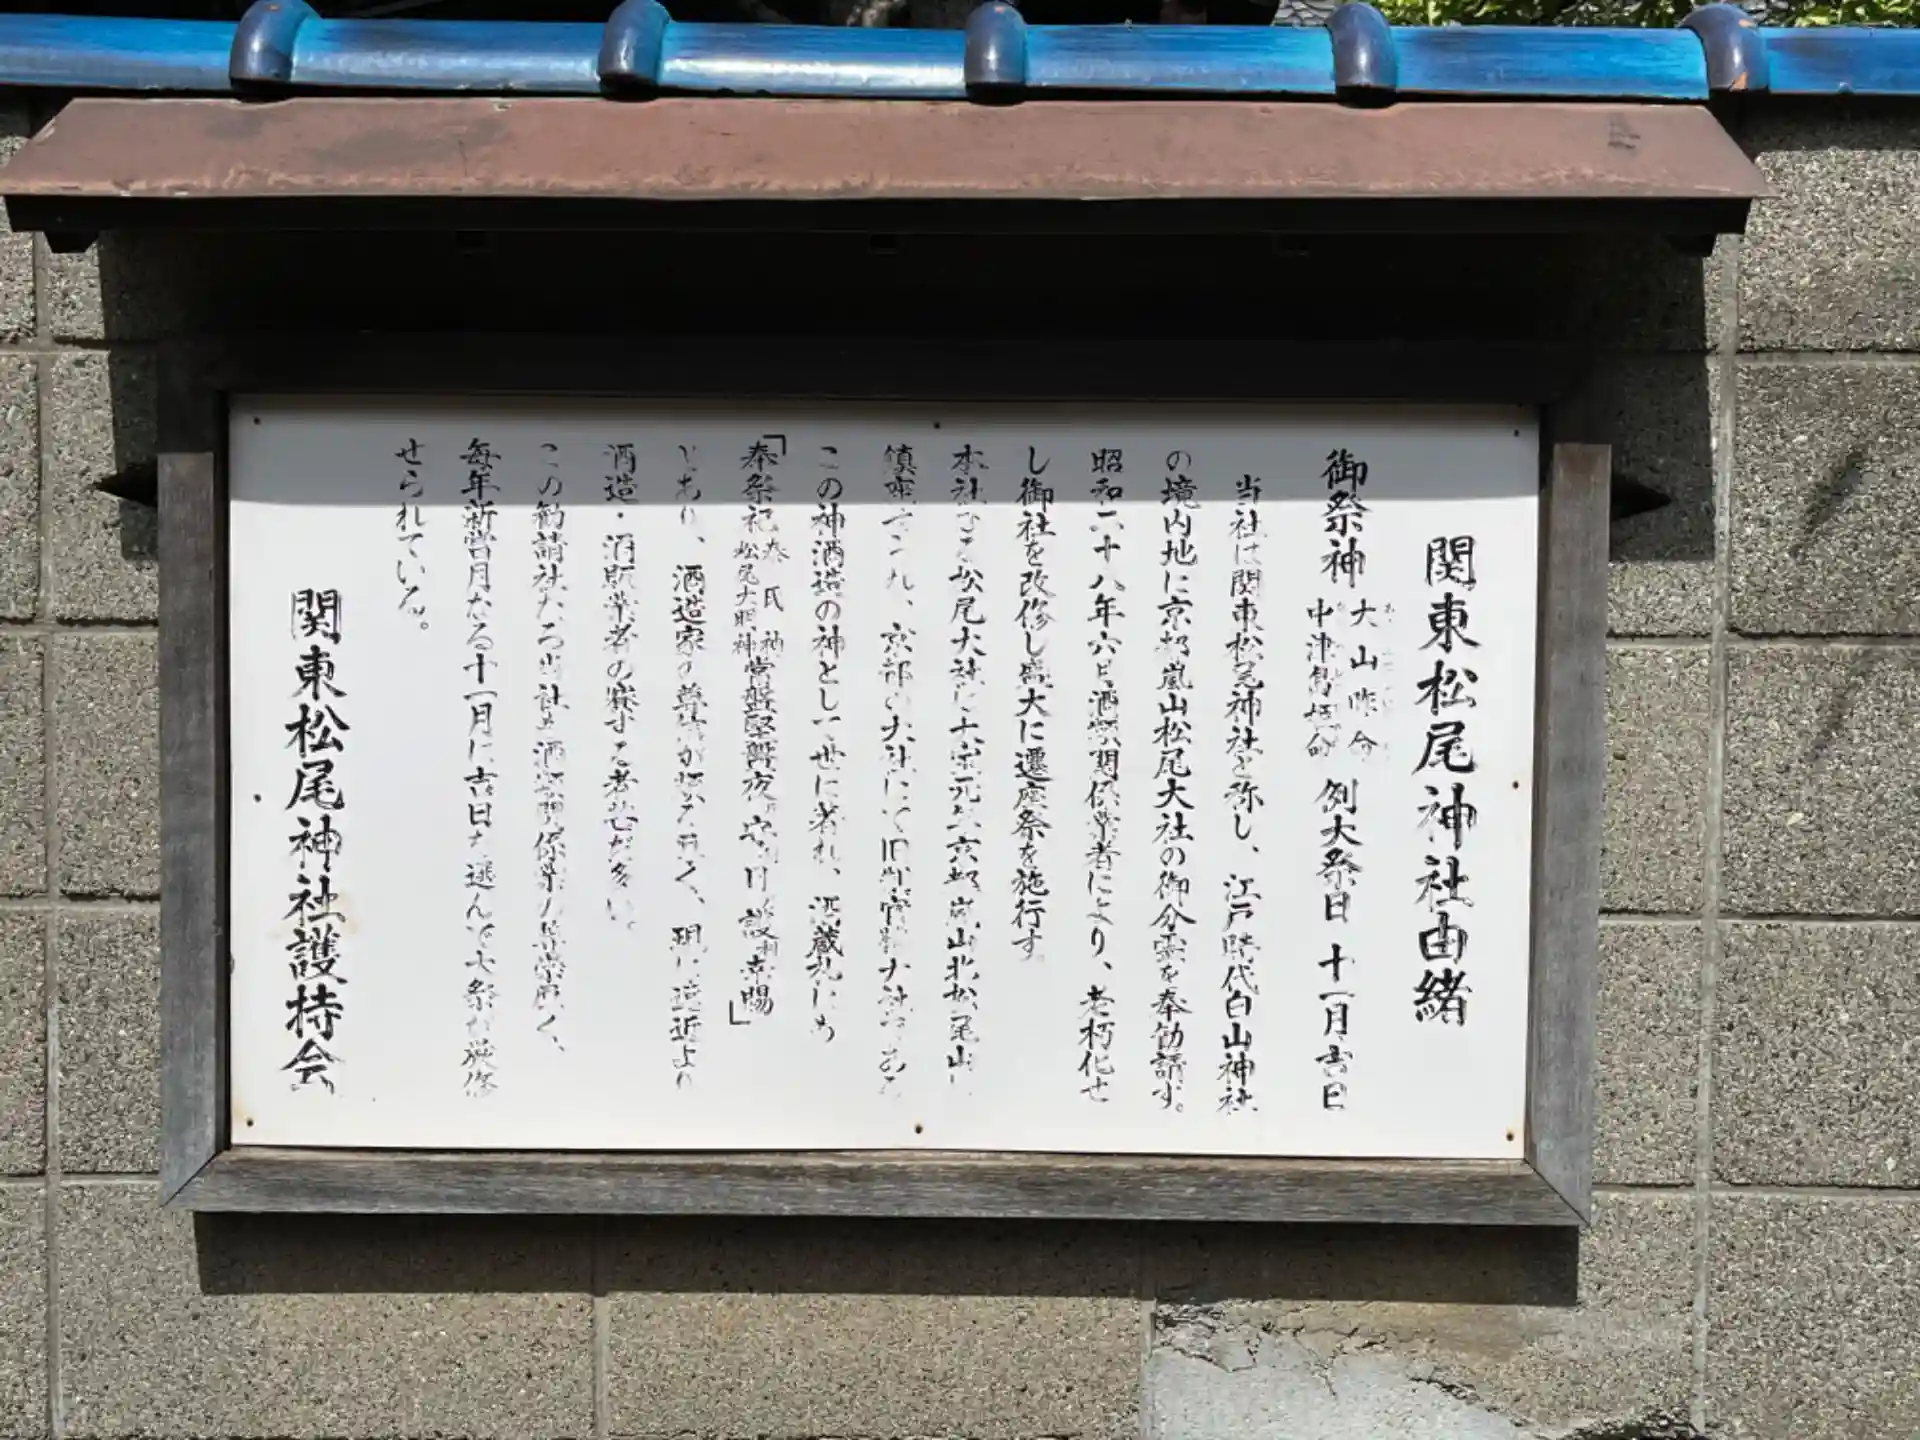 関東松尾神社由緒
御祭神 大山咋命 中津島姫命 例大祭日 十一月吉日
当社は関東松尾神社と称し、江戸時代白山神社
の境内地に京都嵐山松尾大社の御分霊を奉勧請す。
昭和六十八年六月酒類関係業者により、老朽化せ
し御社を改修し盛大に遷座祭を施行す。
本社なる松尾大社は大宝元年京都嵐山北松尾山に
鎮座され、京都の大社にて旧官幣大社である
この神酒造の神として世に著れ、酒蔵札にも
「奉祭祀 秦氏神 松尾大明神 常盤堅磐夜守日 護幸賜」
とあり、酒造家の尊信が極めて厚く、現に遠近より
酒造・酒販業者の賽する者甚だ多い。
この勧請社たる当社も酒類関係業の崇厚く、
毎年新嘗月なる十一月に吉日を選んで大祭が厳修
せられている。
関東松尾神社護持会